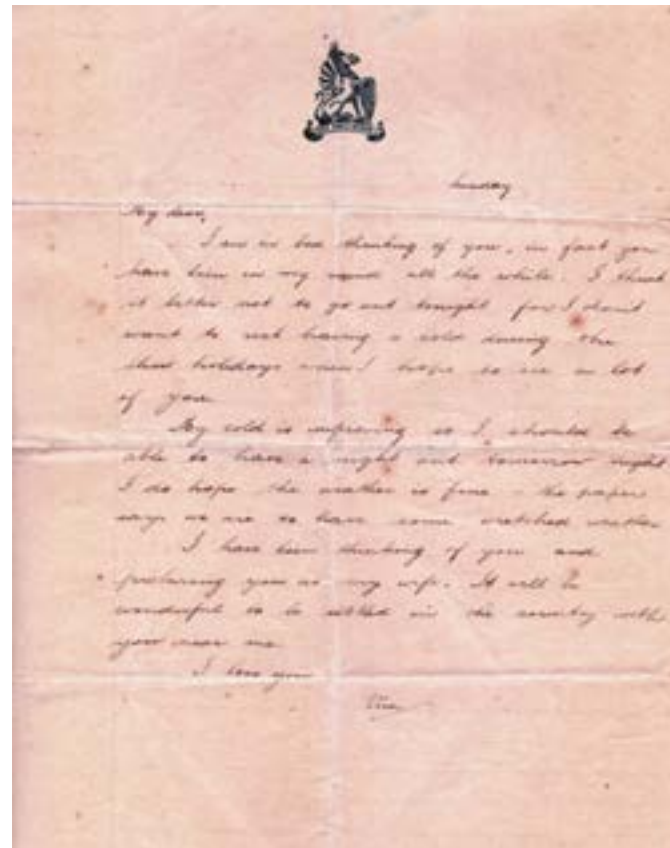 Sunday
My dear,
I am in bed thinking of you, in fact you
have been in my mind all the while. I think
it better not to go out tonight for I don't
want to risk having a cold during the
holidays when I hope to see a lot
of you
My cold is improving so I should be
able to have a night out tomorrow night
I do hope the weather is fine - the paper
says we are to have some wretched weather
I have been thinking of you and
picturing you as my wife. It will be
wonderful to be settled in the country with
you near me
I love you